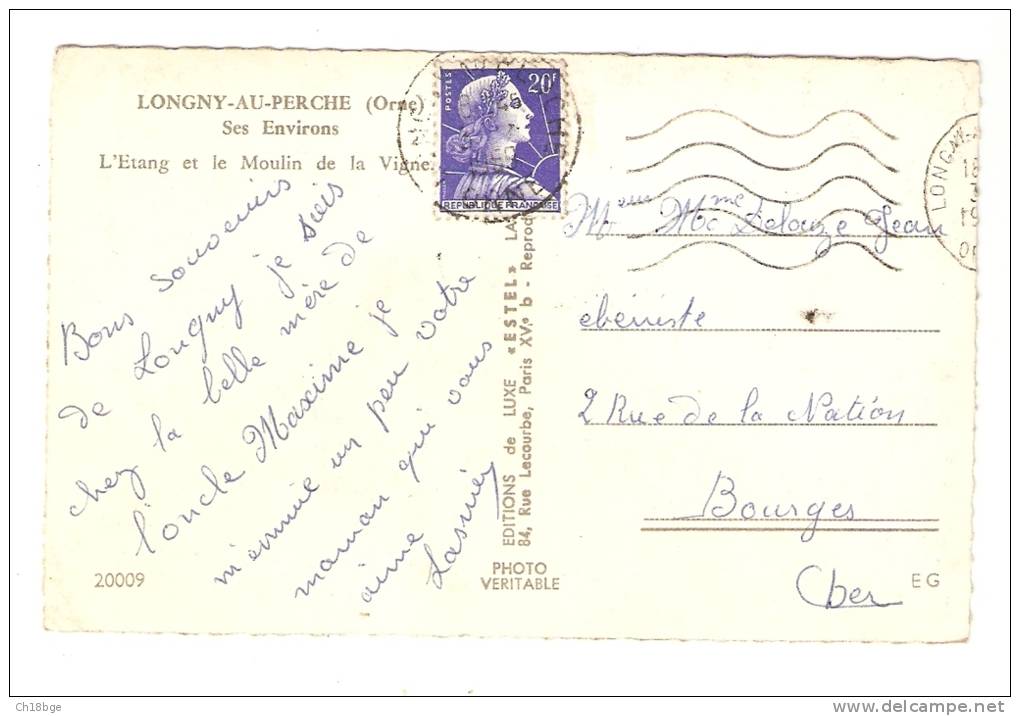 LONGNY-AU-PERCHE (Orne)
Ses Environs
L'Etang et le Moulin de la Vigne.
Bons souvenirs
de Longny je suis
chez la belle mère de
l'oncle Maxime je
m'ennuie un peu votre
maman qui vous
aime
Lasnier
20009
POSTES
20F
REPUBLIQUE FRANÇAISE
EDITIONS de LUXE «ESTEL» LA
84, Rue Lecourbe, Paris XV.e b - Reprod
PHOTO
VERITABLE
LONGNY
18
19
Meur Mme Delouze Jean
ebeniste
2 Rue de la Nation
Bourges
Cher
EG
Ch18bge